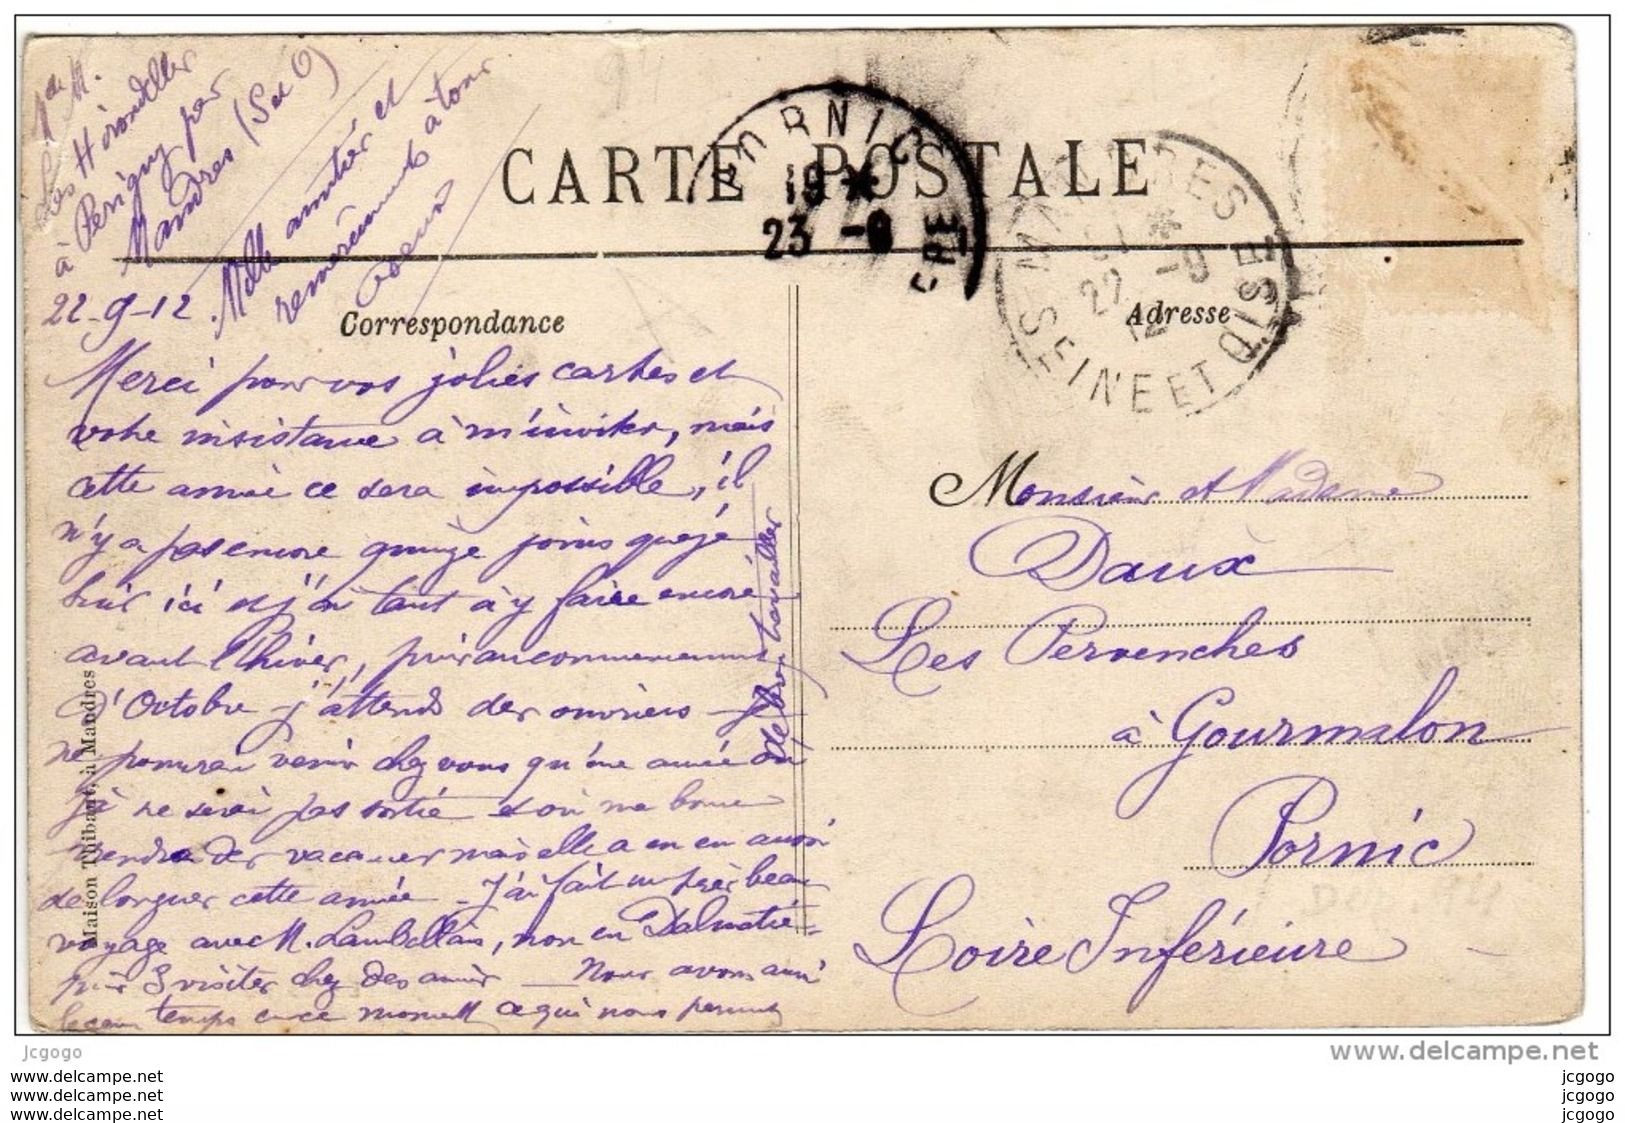 Les Hirondelles
à Périgny par
Mandres (S et O)
22-9-12.
Mille amitiés et
remerciements à tous
deux
CARTE POSTALE
PORNIC
19 *
23 -9
MANDRES
*
22 -9
12
SEINE ET OISE
Correspondance
Adresse
Merci pour vos jolies cartes et
votre insistance à m'inviter, mais
cette année ce sera impossible, il
n'y a pas encore quinze jours que je
suis ici et j'ai tant à y faire encore
avant l'hiver, puis au commencement
d'Octobre j'attends des ouvriers - je
ne pourrai venir chez vous qu'une année où
je ne serai pas sortie et où ma bonne
prendra des vacances mais elle a en eu aussi
de longues cette année - J'ai fait un très beau
voyage avec M. Lambellais, non en Dalmatie -
puis 3 visites chez des amis - Nous avons aussi
beau temps en ce moment ce qui nous permet
de bien travailler
Monsieur et Madame
Daux
Les Pervenches
à Gourmalon
Pornic
Loire Inférieure
Maison Thibaut, à Mandres
jcgogo
www.delcampe.net
www.delcampe.com
jcgogo
www.delcampe.com
jcgogo
www.delcampe.com
jcgogo